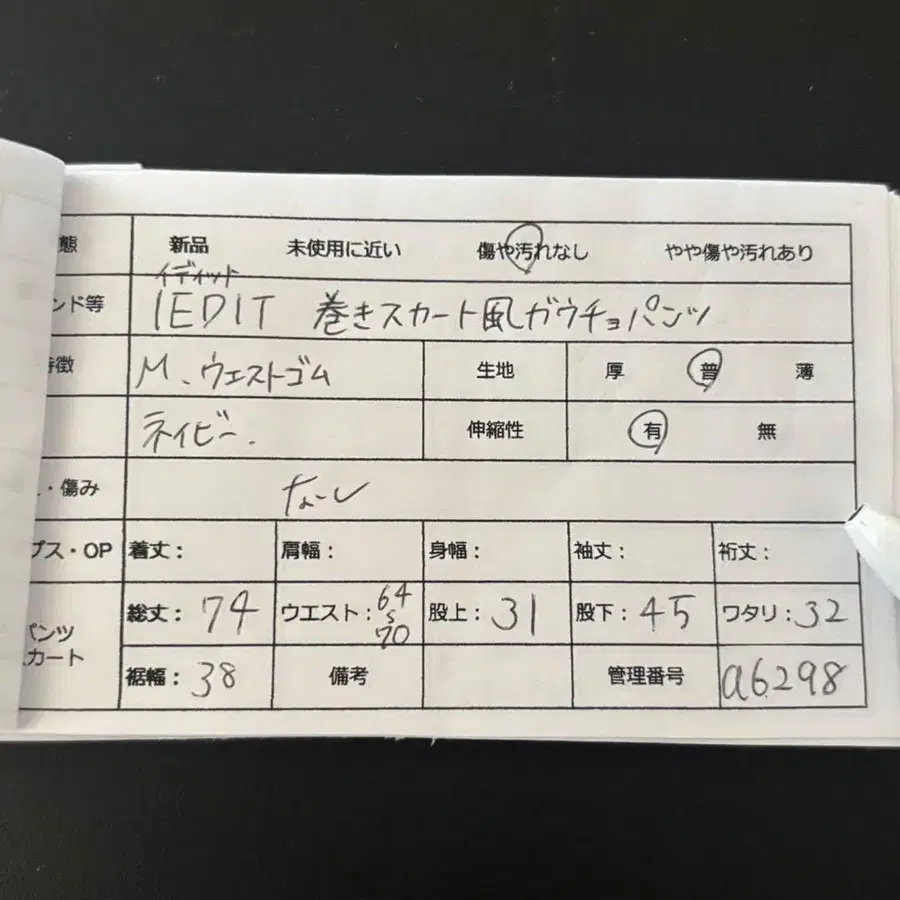 態 新品 未使用に近い 傷や汚れなし やや傷や汚れあり
イディット
ンド等 IEDIT 巻きスカート風ガウチョパンツ
特徴 M、ウエストゴム 生地 厚 普 薄
ネイビー. 伸縮性 有 無
・傷み なし
プス・OP 着丈: 肩幅: 身幅: 袖丈: 裄丈:
パンツ 総丈: 74 ウエスト: 64 〜 70 股上: 31 股下: 45 ワタリ: 32
スカート 裾幅: 38 備考 管理番号 a6298